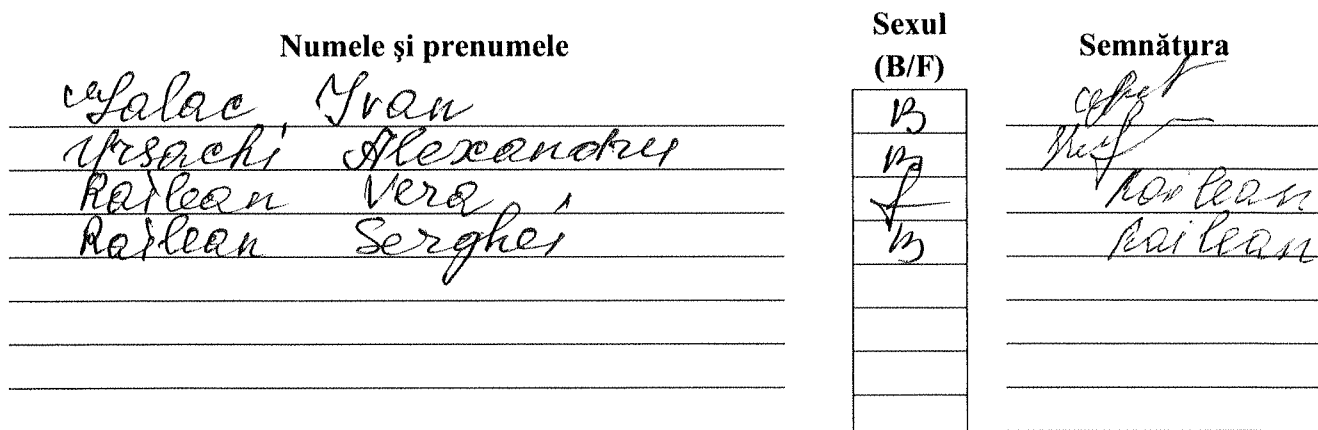 Numele şi prenumele Sexul (B/F) Semnătura
Ivan B
Ursachi Alexandru B
Railean Vera f Railean
Railean Serghei B Railean